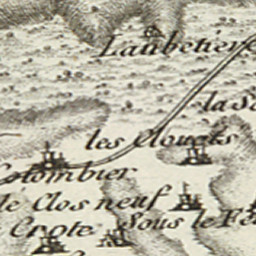 Laubetier
la
les Clouets
Colombier
le Clos neuf
Sous le
Crote